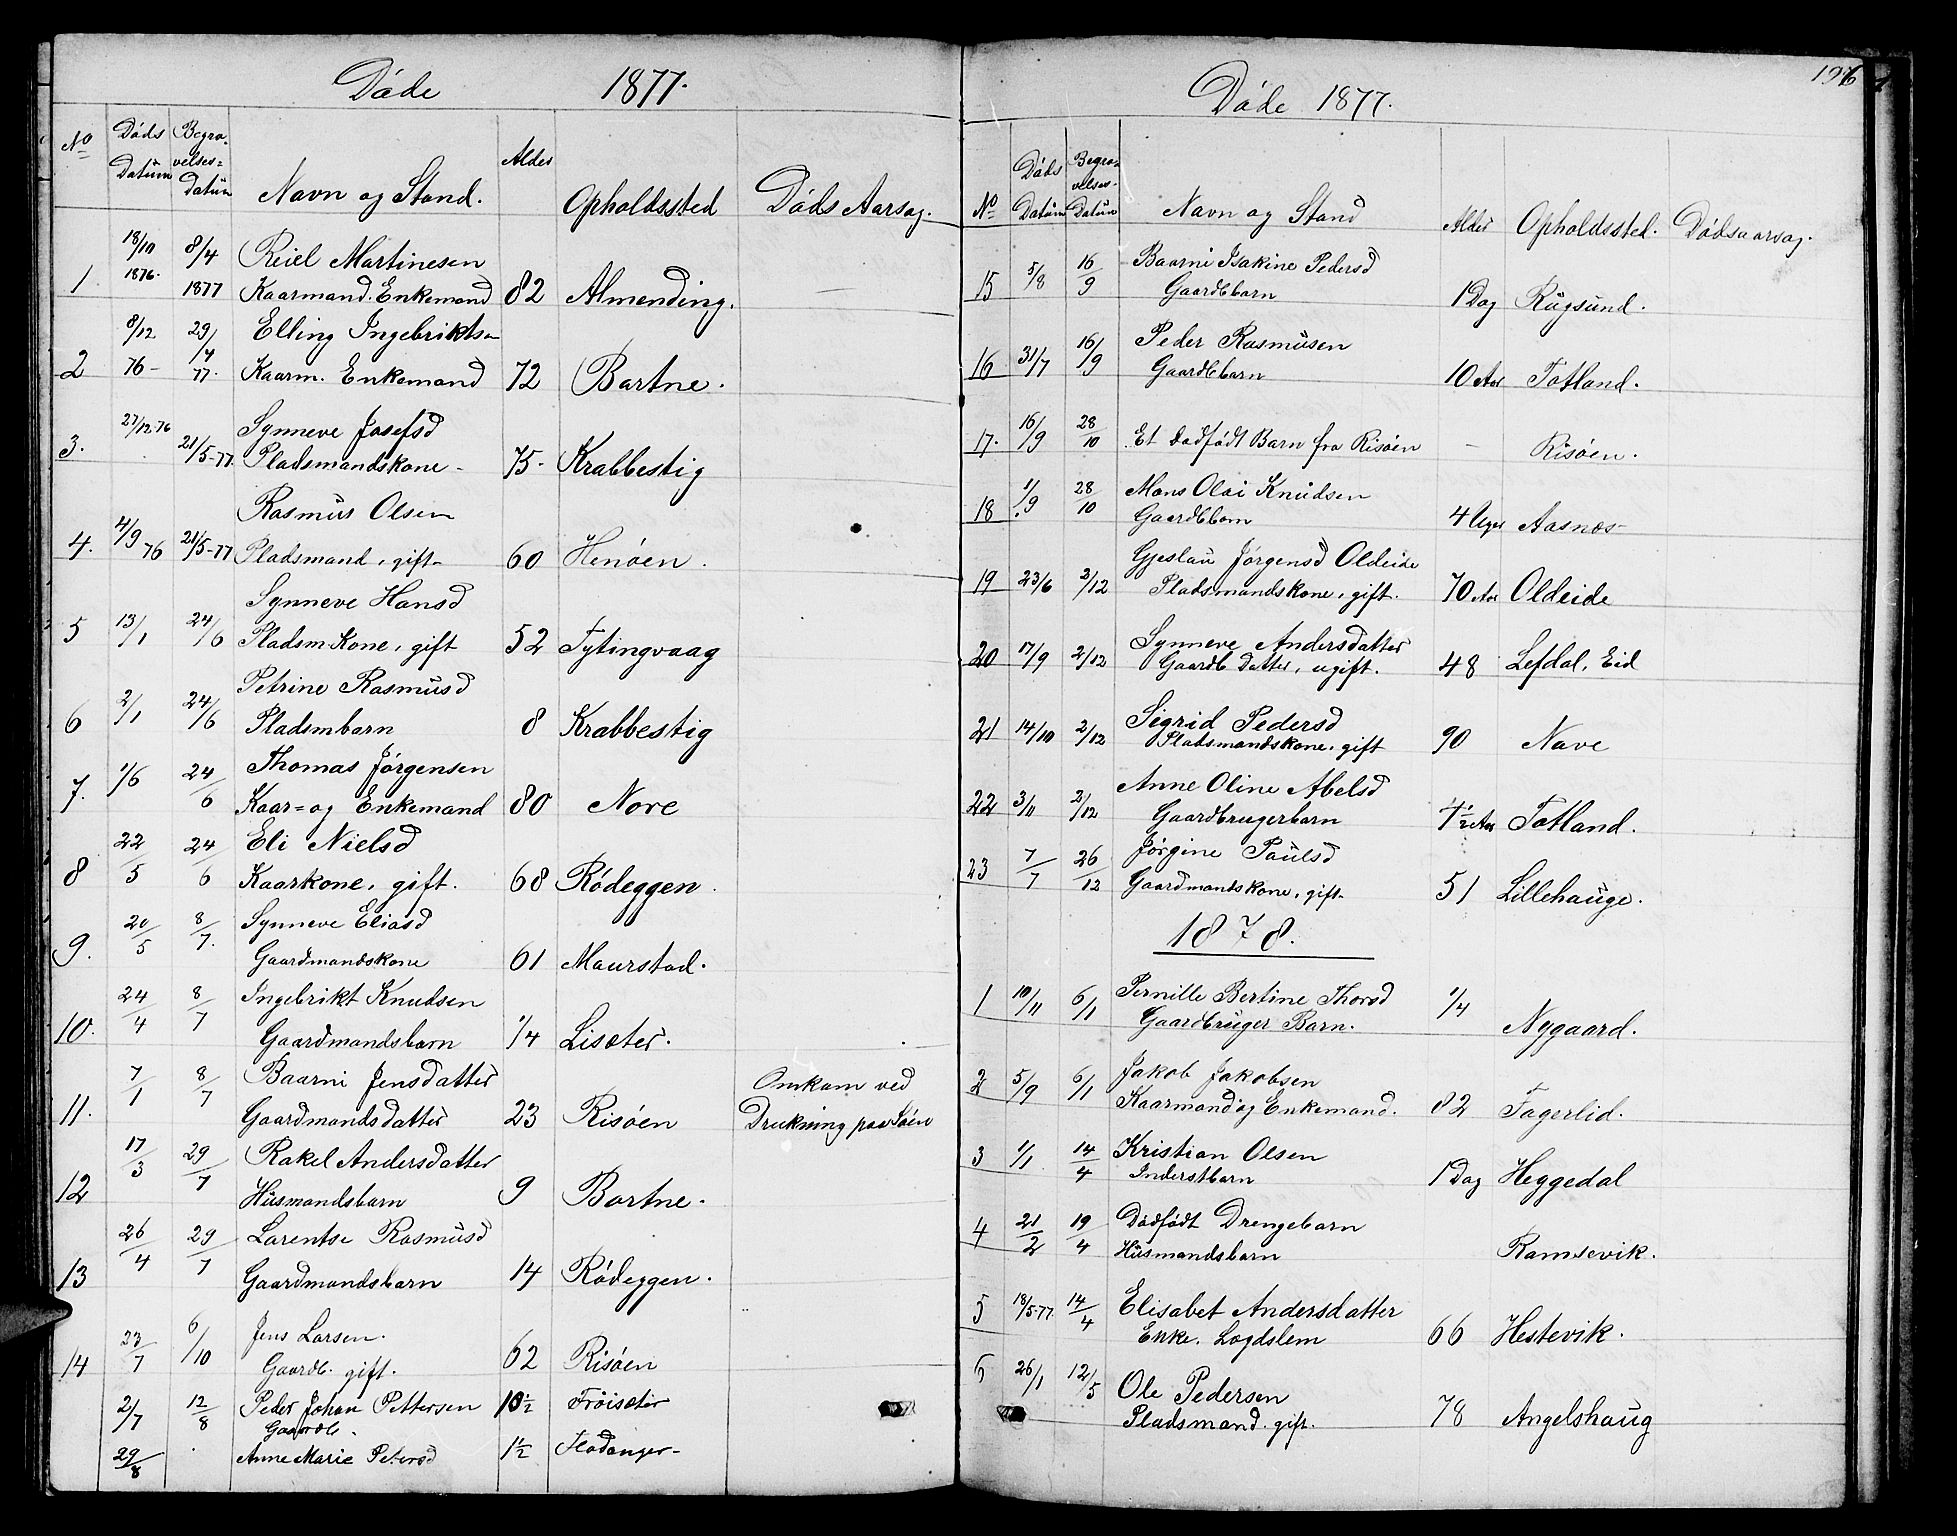 Døde 1877.
No Døds Datum Begravelses= Datum Navn og Stand. Alder Opholdssted Døds Aarsag.
18/10 8/4 Reiel Martinesen
1 1876. 1877 Kaarmand. Enkemand 82 Almending. —
8/12 29/4 Elling Ingebrikts
2 76- 77. Kaarm. Enkemand 72 Bortne.
27/12-76 Synneve Josefsd
3. 21/5-77. Pladsmandskone - 75- Krabbestig
Rasmus Olsen
4. 4/9 76 21/5-77 Pladsmand, gift 60 Henøen.
Synneve Hansd
5 13/1 24/6 Pladsm. Kone, gift 52 Tytingvaag
Petrine Rasmusd
6 2/1 24/6 Pladsmbarn 8 Krabbestig
Thomas Jørgensen
7. 1/6 24/6 Kaar= og Enkemand 80 Nore
Eli Nielsd
8 22/5 24/6 Kaarkone, gift. 68 Rødeggen.
Synneve Eliasd
9. 20/5 8/7. Gaardmandskone 61 Maurstad.
Ingebrikt Knudsen
10. 24/4 8/7 Gaardmandsbarn 1/4 Lisæter.
Baarni Jensdatter Omkom ved
11. 7/1 8/7 Gaardmandsdatter 23 Risøen Drukning paa Søen
Rakel Andersdatter
12 17/3 29/7 Husmandsbarn 9 Bortne.
Larentse Rasmusd
13 26/4 29/7 Gaardmandsbarn 14 Rødeggen.
Jens Larsen.
14 23/7 6/10 Gaardb. gift. 62 Risøen
2/7 12/8 Peder Johan Pettersen 10 1/2 Frøisæter
Gaardb.
29/8 Anne Marie Petersd 1 1/2 Flodanger-
196
Døde 1877.
No Døds Datum Begravelses- Datum Navn og Stand Alder Opholdssted. Dødsaarsag.
Baarni Isakine Pedersd
15 5/8 16/9 Gaardbbarn 1 Dag Rugsund.
Peder Rasmusen
16 31/7 16/9 Gaardbbarn 10 Aar Totland.
17. 16/9 28/10 Et dødfødt Barn fra Risøen - Risøen.
Mons Olai Knudsen
18 1/9 28/10 Gaardbbarn 4 Uger Aasnæs
Gjeslau Jørgensd Oldeide
19 23/6 2/12 Pladsmandskone, gift. 70 Aar Oldeide
Synneve Andersdatter
20 17/9 2/12 Gaardb. Datter, ugift. 48 Lefdal, Eid
Sigrid Pedersd
21 14/10 2/12 Pladsmandskone, gift 90 Nave
Anne Oline Abelsd
22 3/11 2/12 Gaardbrugerbarn 4 1/2 Aar Totland.
Jørgine Paulsd
23 7/7 26/12 Gaardmandskone, gift 51 Lillehauge.
1878.
1 10/11 6/1 Pernille Bertine Thorsd 1/4
Gaardbruger Barn. Nygaard.
2 5/9 6/1 Jakob Jakobsen
Kaarmand og Enkemand. 82 Fagerlid.
3 1/1 14/4 Kristian Olsen
Inderstbarn 1 Dag Heggedal
4 21/2 19/4 Dødfødt Drengebarn
Husmandsbarn Ramsevik.
5 18/5-77 14/4 Elisabet Andersdatter
Enke. Lægdslem 66 Hestevik.
6 26/1 12/5 Ole Pedersen
Pladsmand. gift. 78 Angelshaug